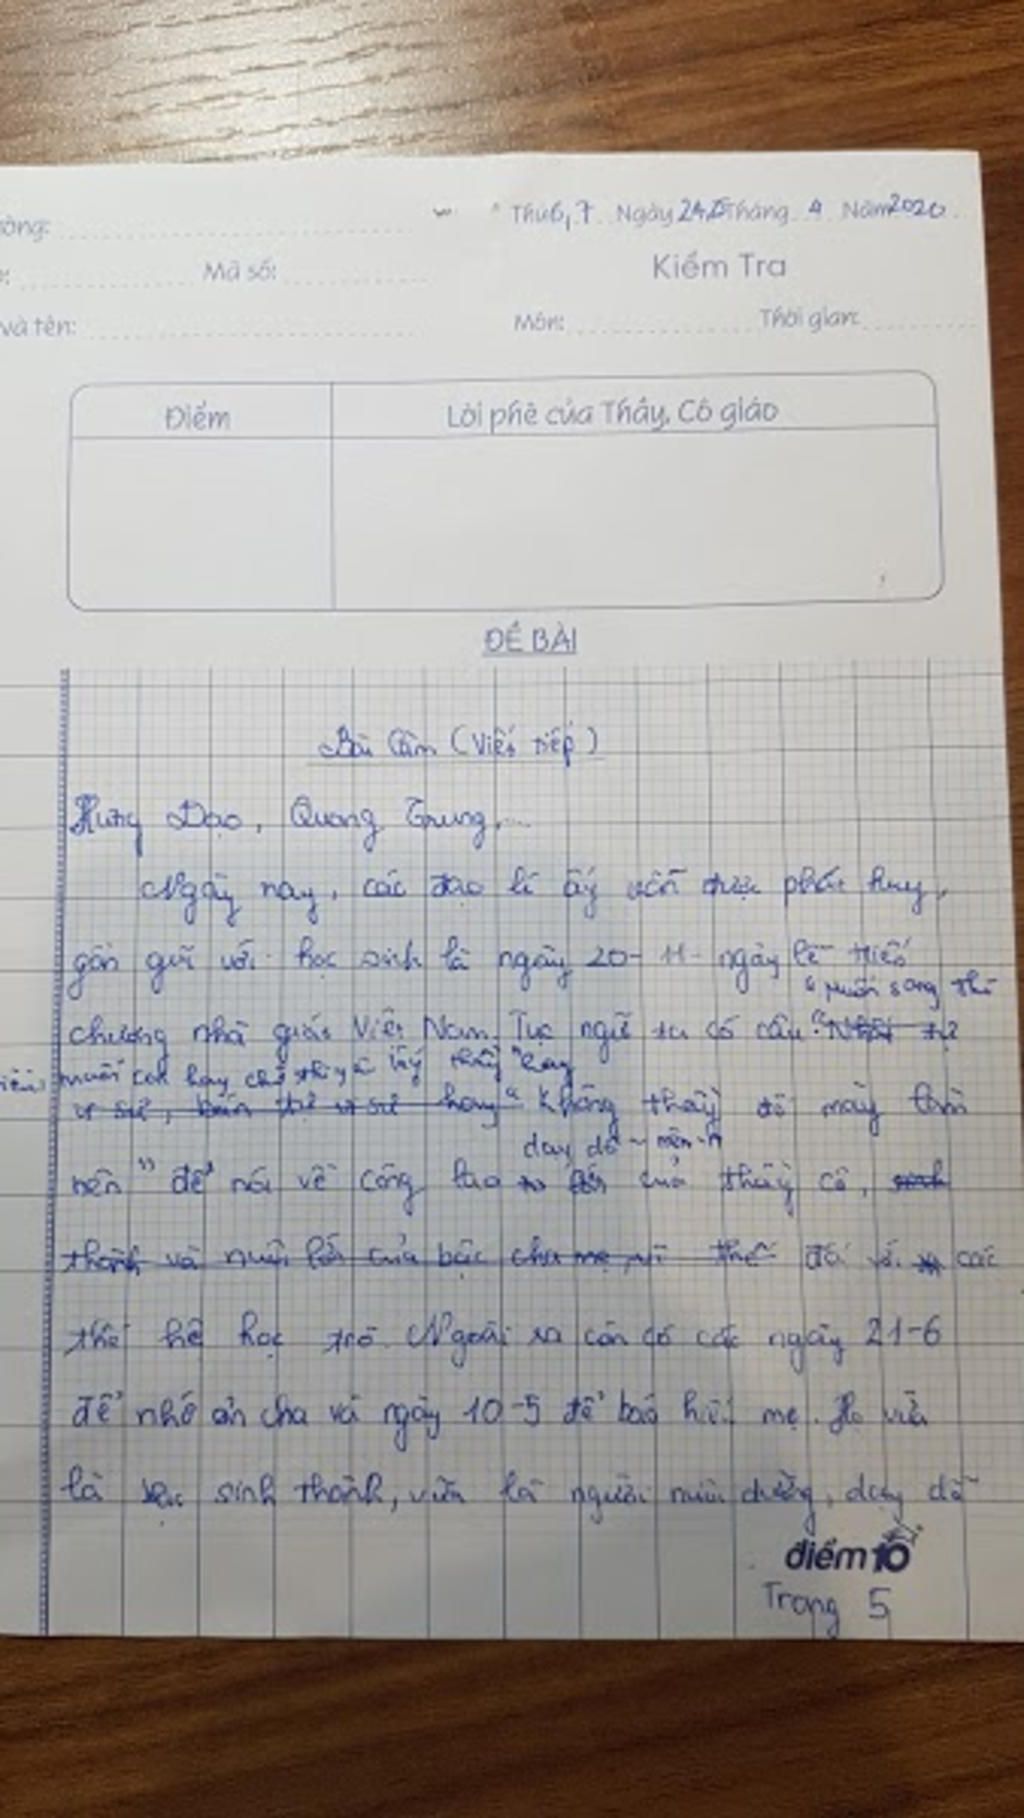 ờng:
Thứ 6, 7 Ngày 24, 25 Tháng 4 Năm 2020
Mã số:
Kiểm Tra
và tên:
Môn: Thời gian:
Điểm
Lời phê của Thầy, Cô giáo
ĐỀ BÀI
Bài làm (Viết tiếp)
Hưng Đạo, Quang Trung,...
Ngày nay, các đạo lí ấy vẫn được phát huy,
gần gũi với học sinh là ngày 20-11- ngày lễ Hiến
"muốn sang thì
chương nhà giáo Việt Nam. Tục ngữ ta có câu "Nhất tự
muốn con hay chữ thì yêu lấy thầy" hay
vi sư, bán tự vi sư hay "Không thầy đố mày làm
dạy dỗ
nên" để nói về công lao của thầy cô, sinh
thành và nuôi lớn của bậc cha mẹ thế đối với các
thế hệ học trò. Ngoài ra còn có các ngày 21-6
để nhớ ơn cha và ngày 10-5 để báo hiếu mẹ. Họ vừa
là bậc sinh thành, vừa là người nuôi dưỡng, dạy dỗ
điểm 10
Trang 5